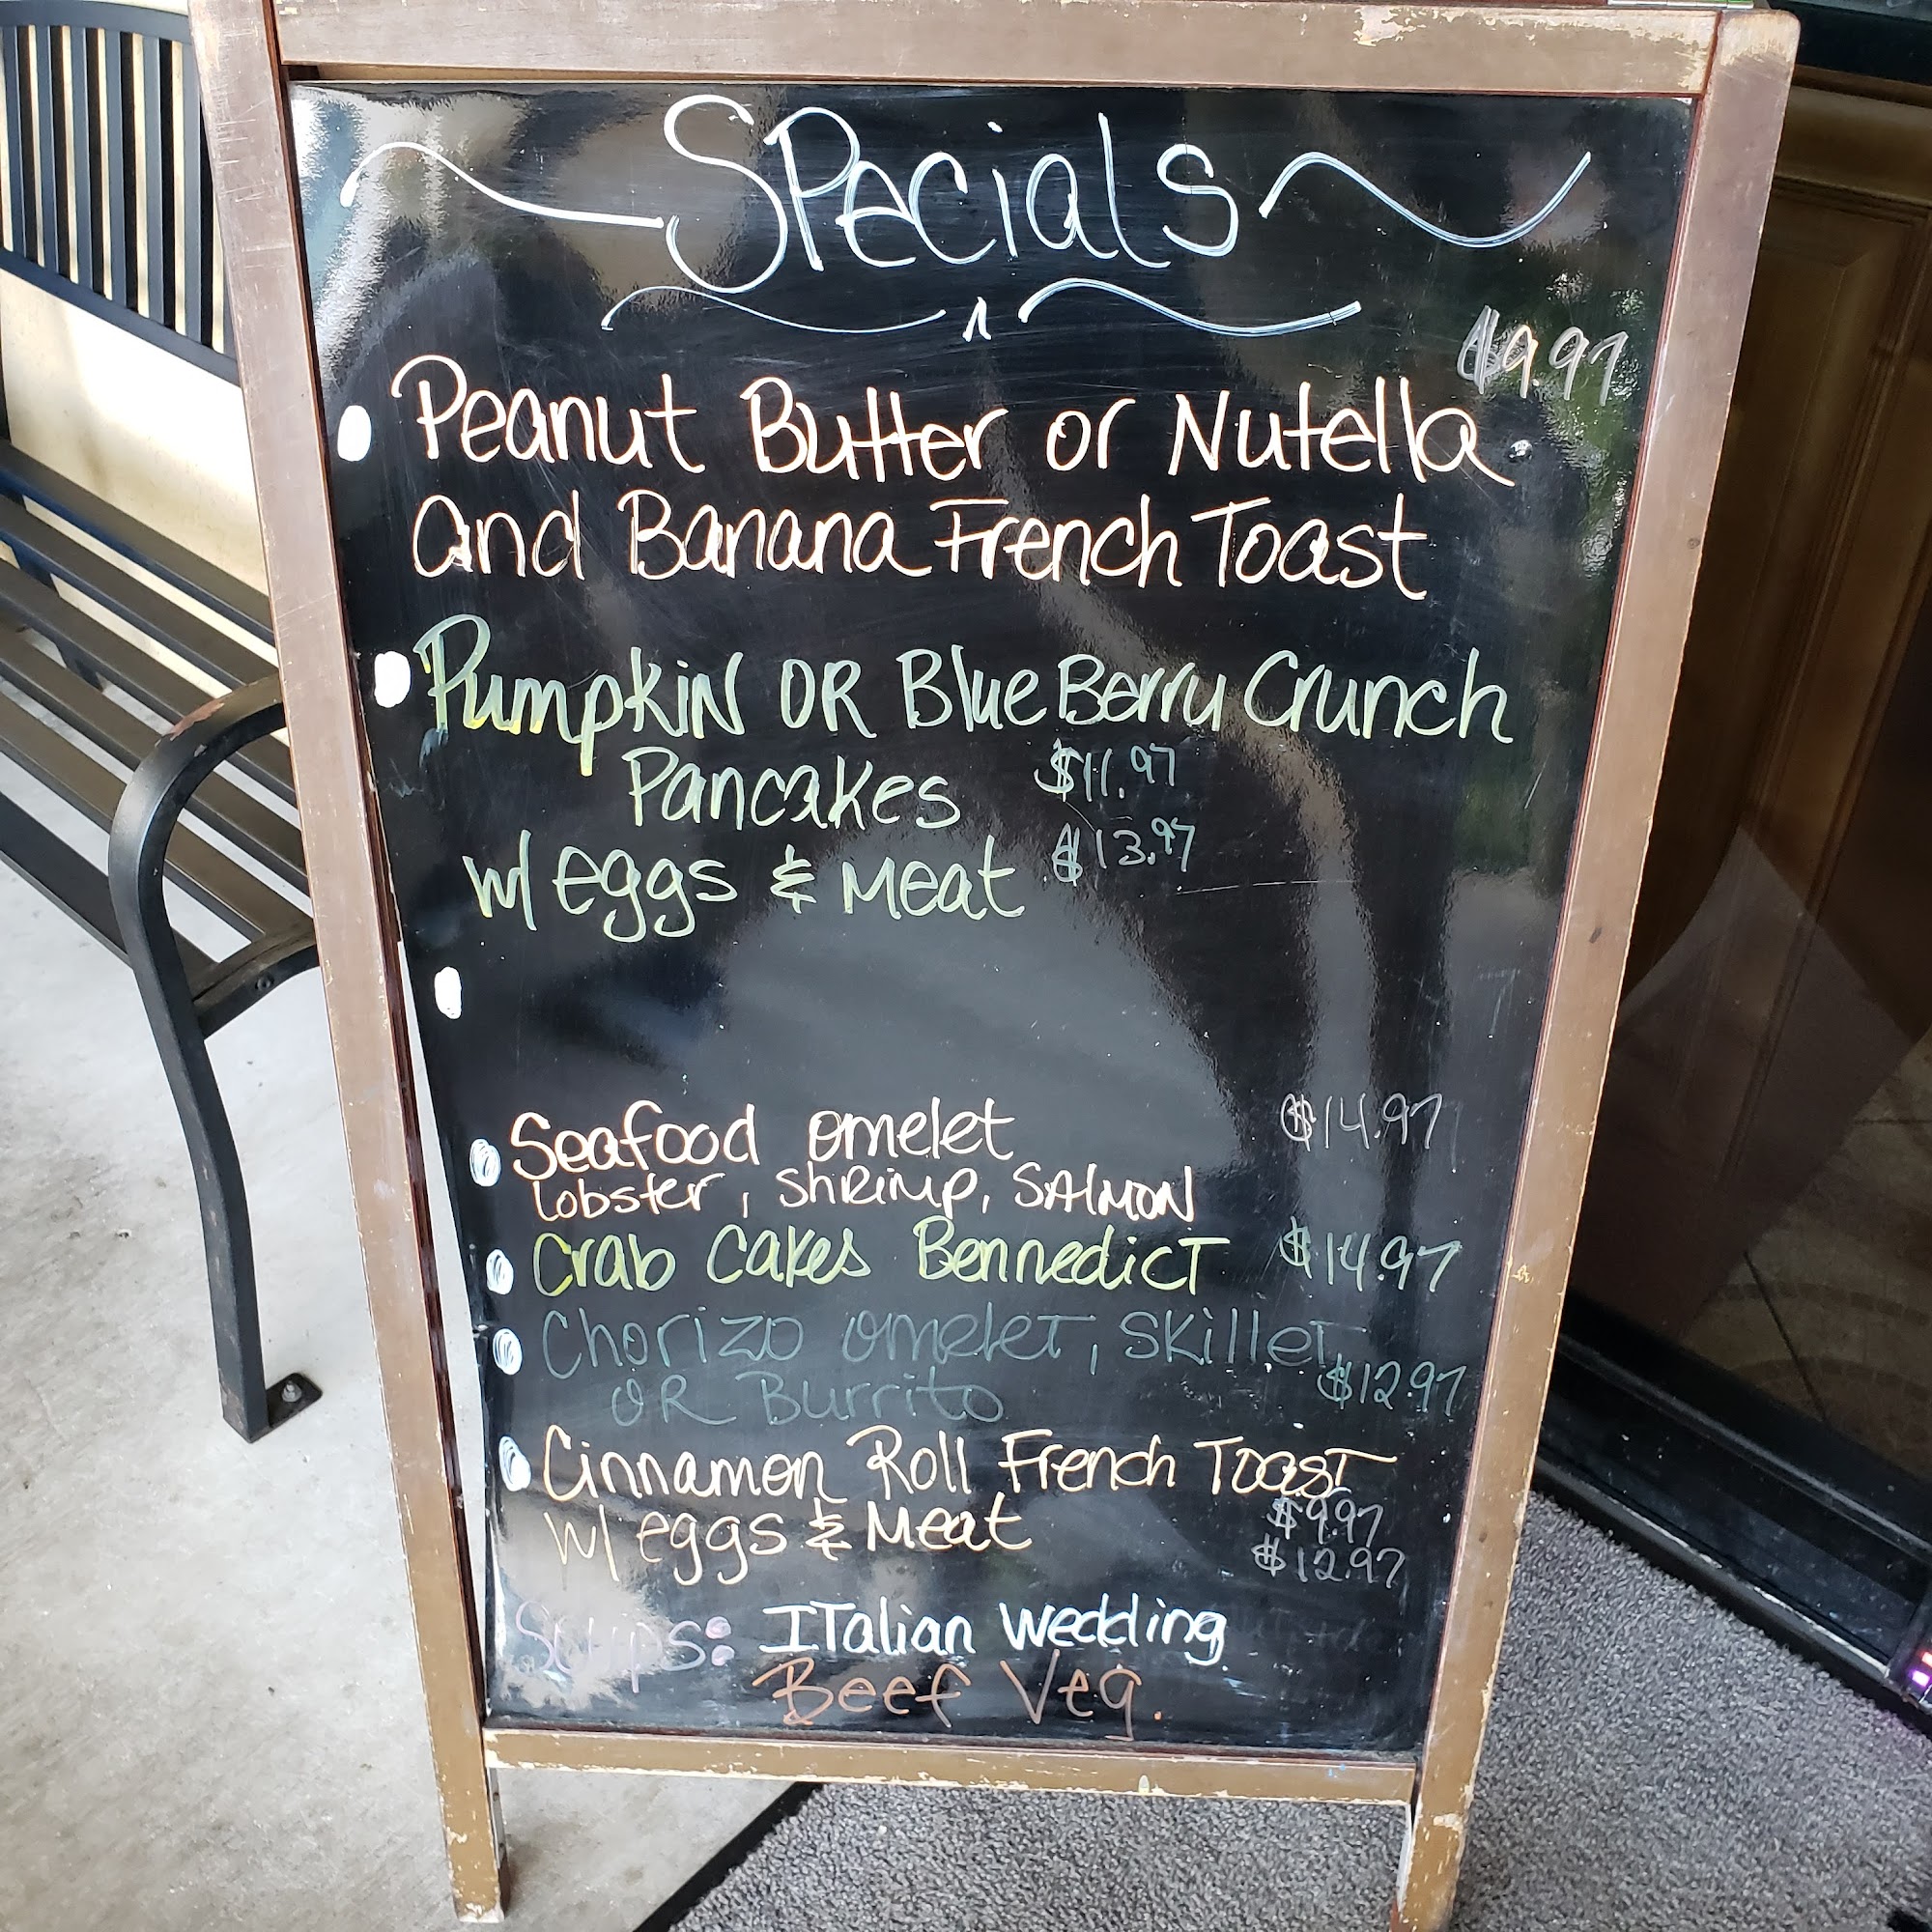 Specials
$9.97
Peanut Butter or Nutella
and Banana French Toast
Pumpkin OR BlueBerry Crunch
Pancakes $11.97
w/ eggs & Meat $13.97
Seafood omelet $14.97
lobster, shrimp, SAlMON
Crab Cakes Bennedict $14.97
Chorizo omelet, Skillet
OR Burrito $12.97
Cinnamon Roll French Toast
$9.97
w/ eggs & Meat
$12.97
Soups: ITalian Wedding
Beef Veg.